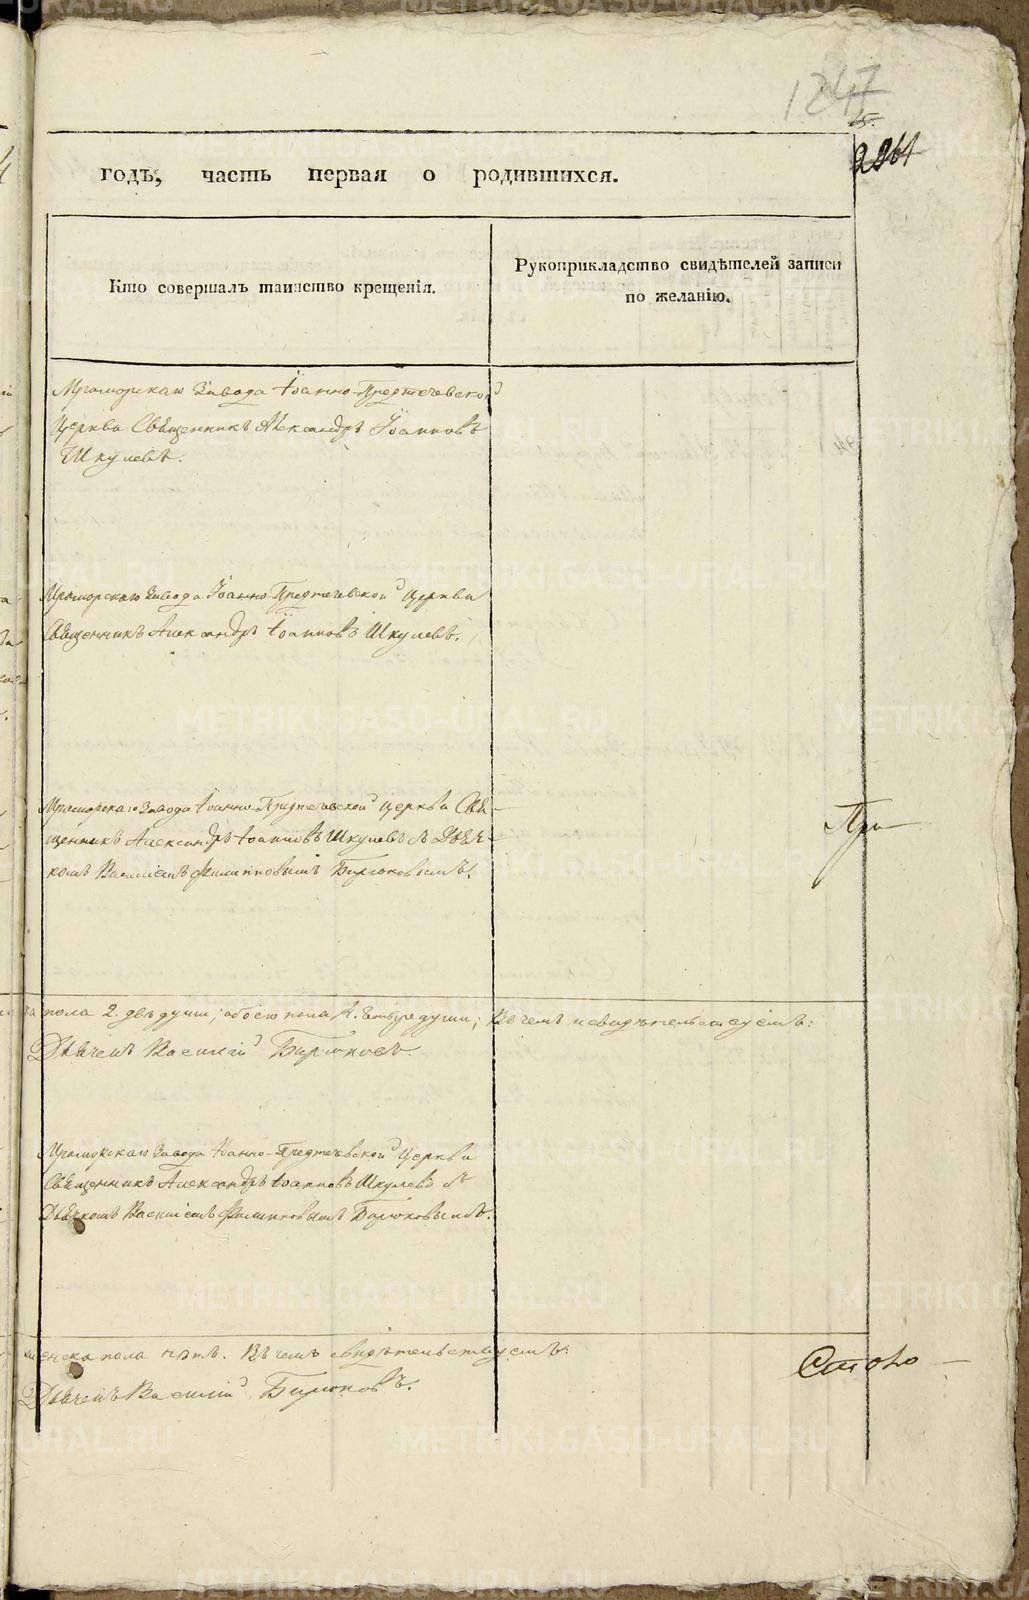 1247
15.
2261
годъ, часть первая о родившихся.
Кто совершалъ таинство крещенія.
Рукоприкладство свидѣтелей записи
по желанію.
Мраморскаго Завода Іоанно-Предтечевской
Церкви Священникъ Александръ Іоанновъ
Шкулевъ.
Мраморскаго Завода Іоанно Предтечевской Церкви
Священникъ Александръ Іоанновъ Шкулевъ.
Мраморскаго Завода Іоанно-Предтечевской Церкви Свя-
щенникъ Александръ Іоанновъ Шкулевъ съ Дьяч-
комъ Василіемъ Филипповымъ Бирюковымъ.
При
пола 2. двѣ души; обоего пола 4. четыре души; Въ чемъ и свидѣтельствуемъ:
Дьячекъ Василій Бирюковъ.
Мраморскаго Завода Іоанно-Предтечевской Церкви
Священникъ Александръ Іоанновъ Шкулевъ съ
Дьячкомъ Василіемъ Филипповымъ Бирюковымъ.
женска пола нѣтъ. Въ чемъ свидѣтельствуемъ:
Дьячекъ Василій Бирюковъ.
METRIKI.GASO-URAL.RU